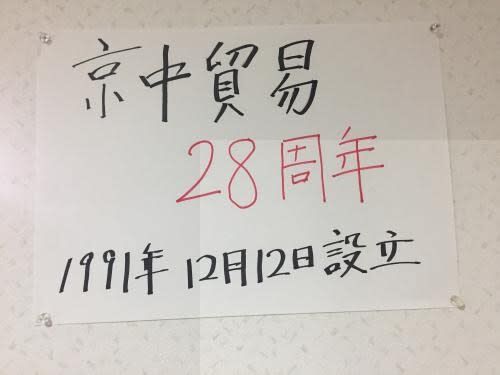 京中貿易
28周年
1991年12月12日設立